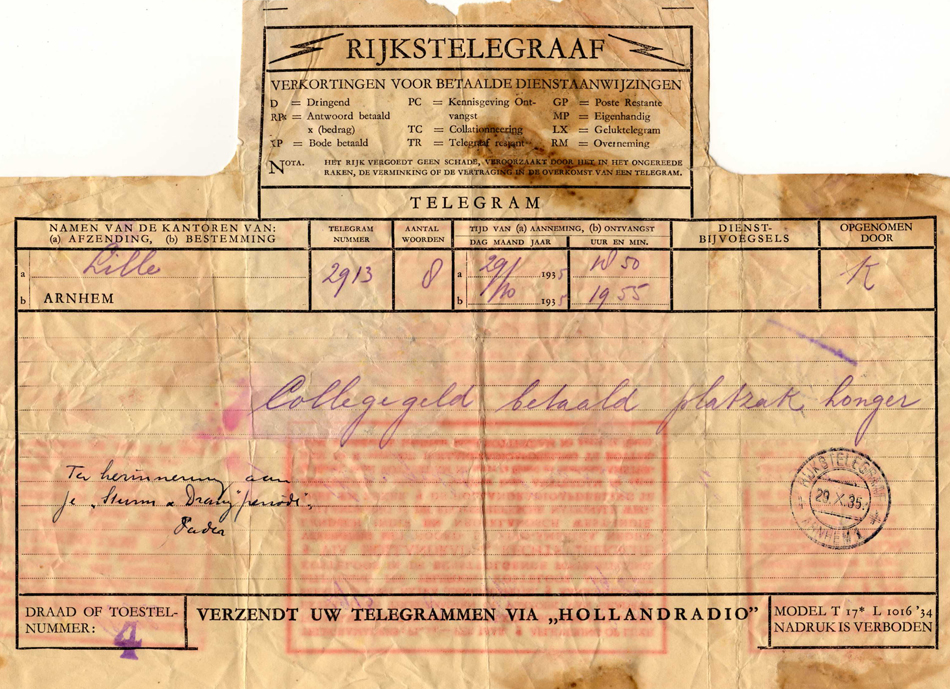 RIJKSTELEGRAAF
VERKORTINGEN VOOR BETAALDE DIENSTAANWIJZINGEN
D = Dringend PC = Kennisgeving Ont- GP = Poste Restante
RPx = Antwoord betaald vangst MP = Eigenhandig
x (bedrag) TC = Collationneering LX = Geluktelegram
XP = Bode betaald TR = Telegraf restant RM = Overneming
NOTA. HET RIJK VERGOEDT GEEN SCHADE, VEROORZAAKT DOOR HET IN HET ONGEREEDE
RAKEN, DE VERMINKING OF DE VERTRAGING IN DE OVERKOMST VAN EEN TELEGRAM.
TELEGRAM
NAMEN VAN DE KANTOREN VAN: TELEGRAM AANTAL TIJD VAN (a) AANNEMING, (b) ONTVANGST DIENST- OPGENOMEN
(a) AFZENDING, (b) BESTEMMING NUMMER WOORDEN DAG MAAND JAAR UUR EN MIN. BIJVOEGSELS DOOR
a Lille 2913 8 a 29/ 1935 18 50 K
b ARNHEM b /10 1935 19 55
Collegegeld betaald platzak, honger
Ter herinnering aan
je „Sturm & Drang" periode.
Vader
RIJKSTELEGRAAF
29.X.35.
ARNHEM 1
DRAAD OF TOESTEL- VERZENDT UW TELEGRAMMEN VIA „HOLLANDRADIO” MODEL T 17* L 1016 '34
NUMMER: 4 NADRUK IS VERBODEN